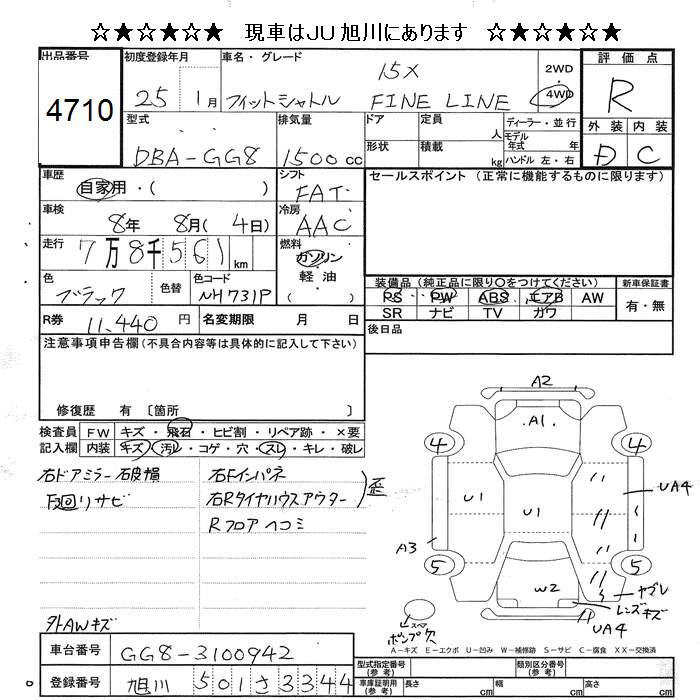 ☆★☆★☆★ 現車はJU旭川にあります ☆★☆★☆★
出品番号 4710
初度登録年月 25 1月
車名・グレード フィットシャトル 15X FINE LINE
2WD・4WD
評価点 R
外装 D 内装 C
型式 DBA-GG8
排気量 1500cc
ドア 定員 人 ディーラー・並行
形状 積載 kg モデル年式 年
ハンドル 左・右
車歴 自家用・( )
シフト FAT
セールスポイント (正常に機能するものに限ります)
車検 8年 8月(4日)
冷房 AAC
走行 7万8千561km
燃料 ガソリン 軽油 ( )
色 ブラック 色替 色コード NH731P
装備品 (純正品に限り〇をつけてください) 新車保証書
PS PW ABS エアB AW 有・無
SR ナビ TV カワ
R券 11,440円 名変期限 月 日
後日品
注意事項申告欄(不具合内容等は具体的に記入して下さい)
修復歴 有 〔箇所 〕
検査員 FW キズ・飛石・ヒビ割・リペア跡・×要
記入欄 内装 キズ・汚レ・コゲ・穴・スレ・キレ・破レ
右ドアミラー破損
下回リサビ
右Fインパネ
右Rタイヤハウスアウター 歪
Rフロアヘコミ
外AWキズ
A2
A1
4 4
U1 U1 UA4
A3
5 5
W2
ヤブレ
レンズキズ
UA4
スペア
ポンプ穴
A-キズ E-エクボ U-凹み W-補修跡 S-サビ C-腐食 XX-交換済
車台番号 GG8-3100942
登録番号 旭川 501 さ 3344
型式指定番号(参考) 類別区分番号(参考)
車庫証明用(参考) 長さ cm 幅 cm 高さ cm